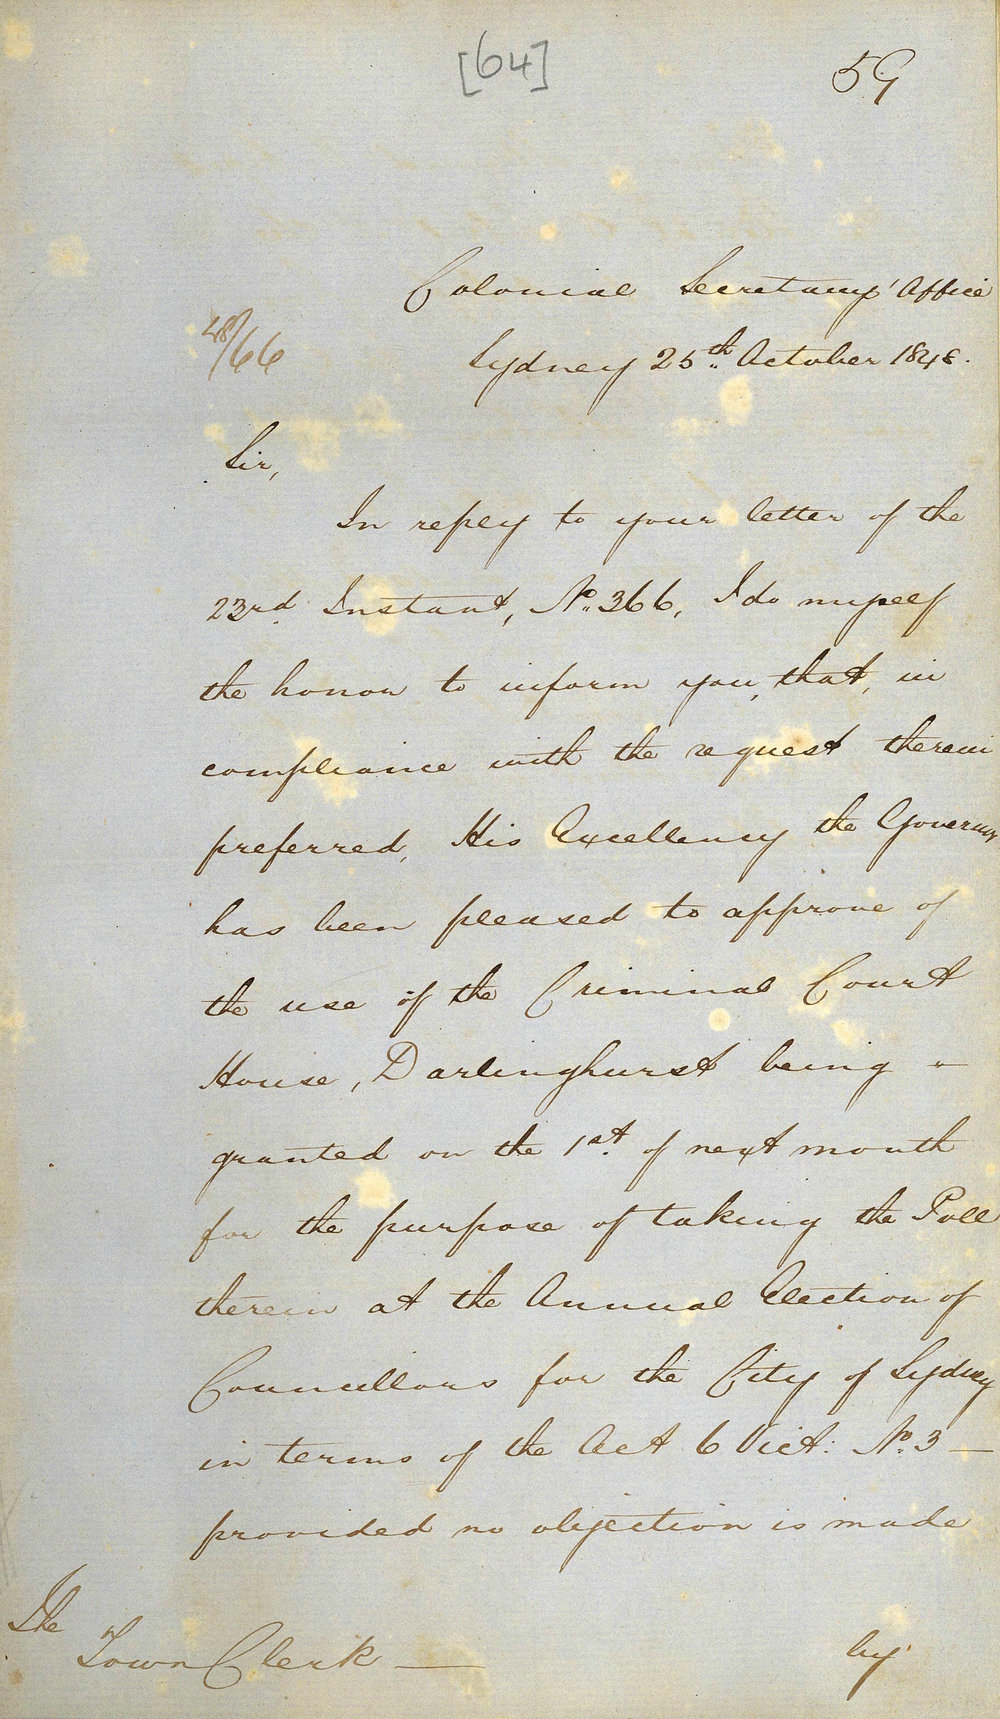 [64]
59
Colonial Secretary's Office
48/66
Sydney 25th October 1848.
Sir,
In reply to your letter of the
23rd Instant, No. 366, I do myself
the honor to inform you, that, in
compliance with the request therein
preferred, His Excellency the Governor
has been pleased to approve of
the use of the Criminal Court
House, Darlinghurst being
granted on the 1st. of next month
for the purpose of taking the Poll
therein at the Annual Election of
Councillors for the City of Sydney
in terms of the Act 6 Vict: No. 3 —
provided no objection is made
The
Town Clerk —
by